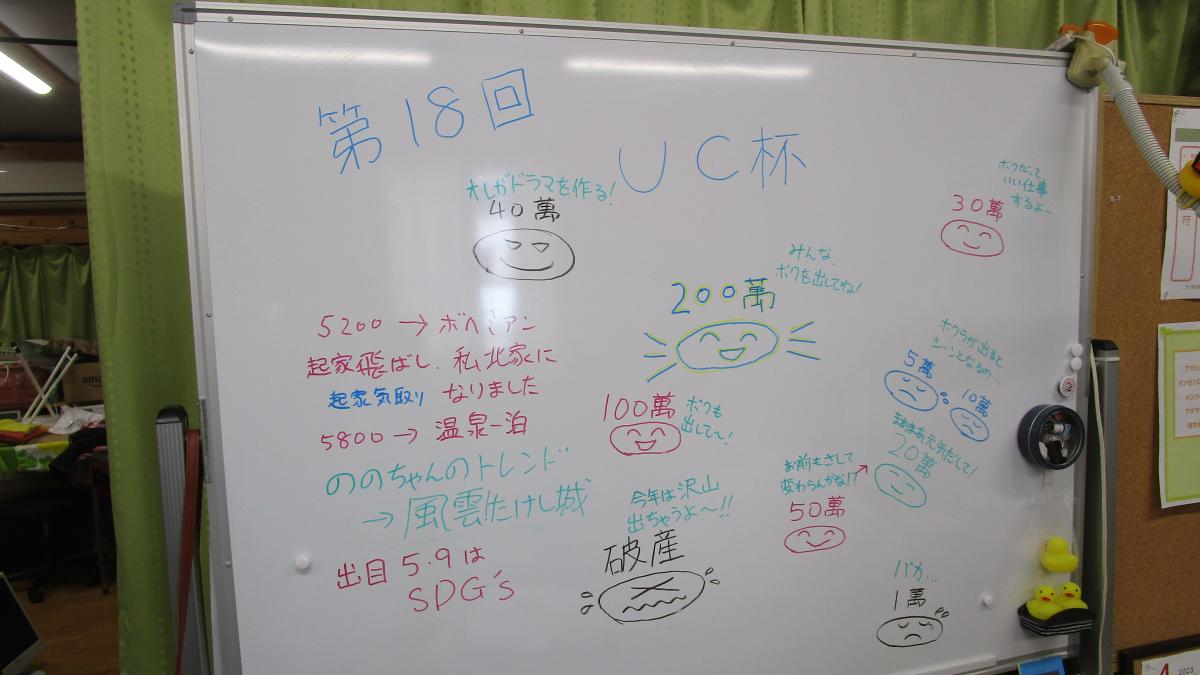 第18回
UC杯
オレがドラマを作る!
40萬
ボクだって
いい仕事
するよ〜
30萬
みんな、
ボクを出してね!
200萬
5200→ボヘミアン
起家飛ばし、私北家に
起家気取り なりました
5800→温泉一泊
ののちゃんのトレンド
→風雲たけし城
出目 5.9は
SDG's
100萬
ボクも
出して〜!
今年は沢山
出ちゃうよ〜!!
破産
ボクラが出ると
シーンとなるの…
5萬
10萬
まあまあ元気だして!
20萬
お前もさして
変わらんがな!?
50萬
バカ…
1萬
amaz
2023